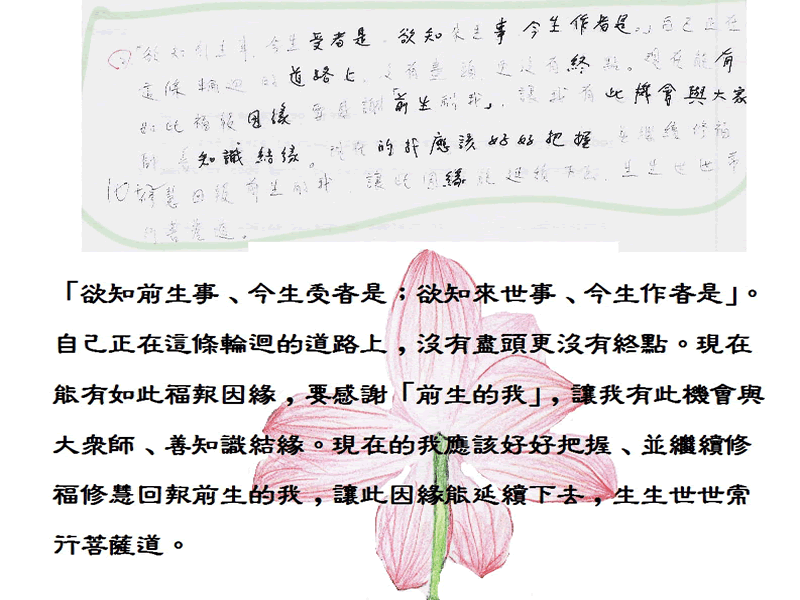 「欲知前生事、今生受者是，欲知來生事、今生作者是。」自己正在
這條輪迴的道路上，沒有盡頭更沒有終點。現在能有
如此福報因緣要感謝「前生的我」，讓我有此機會與大家
師、善知識結緣。現在的我應該好好把握、並繼續修福
修慧回報前生的我，讓此因緣能延續下去，生生世世常
行菩薩道。
「欲知前生事、今生受者是；欲知來世事、今生作者是」。
自己正在這條輪迴的道路上，沒有盡頭更沒有終點。現在
能有如此福報因緣，要感謝「前生的我」，讓我有此機會與
大眾師、善知識結緣。現在的我應該好好把握、並繼續修
福修慧回報前生的我，讓此因緣能延續下去，生生世世常
行菩薩道。